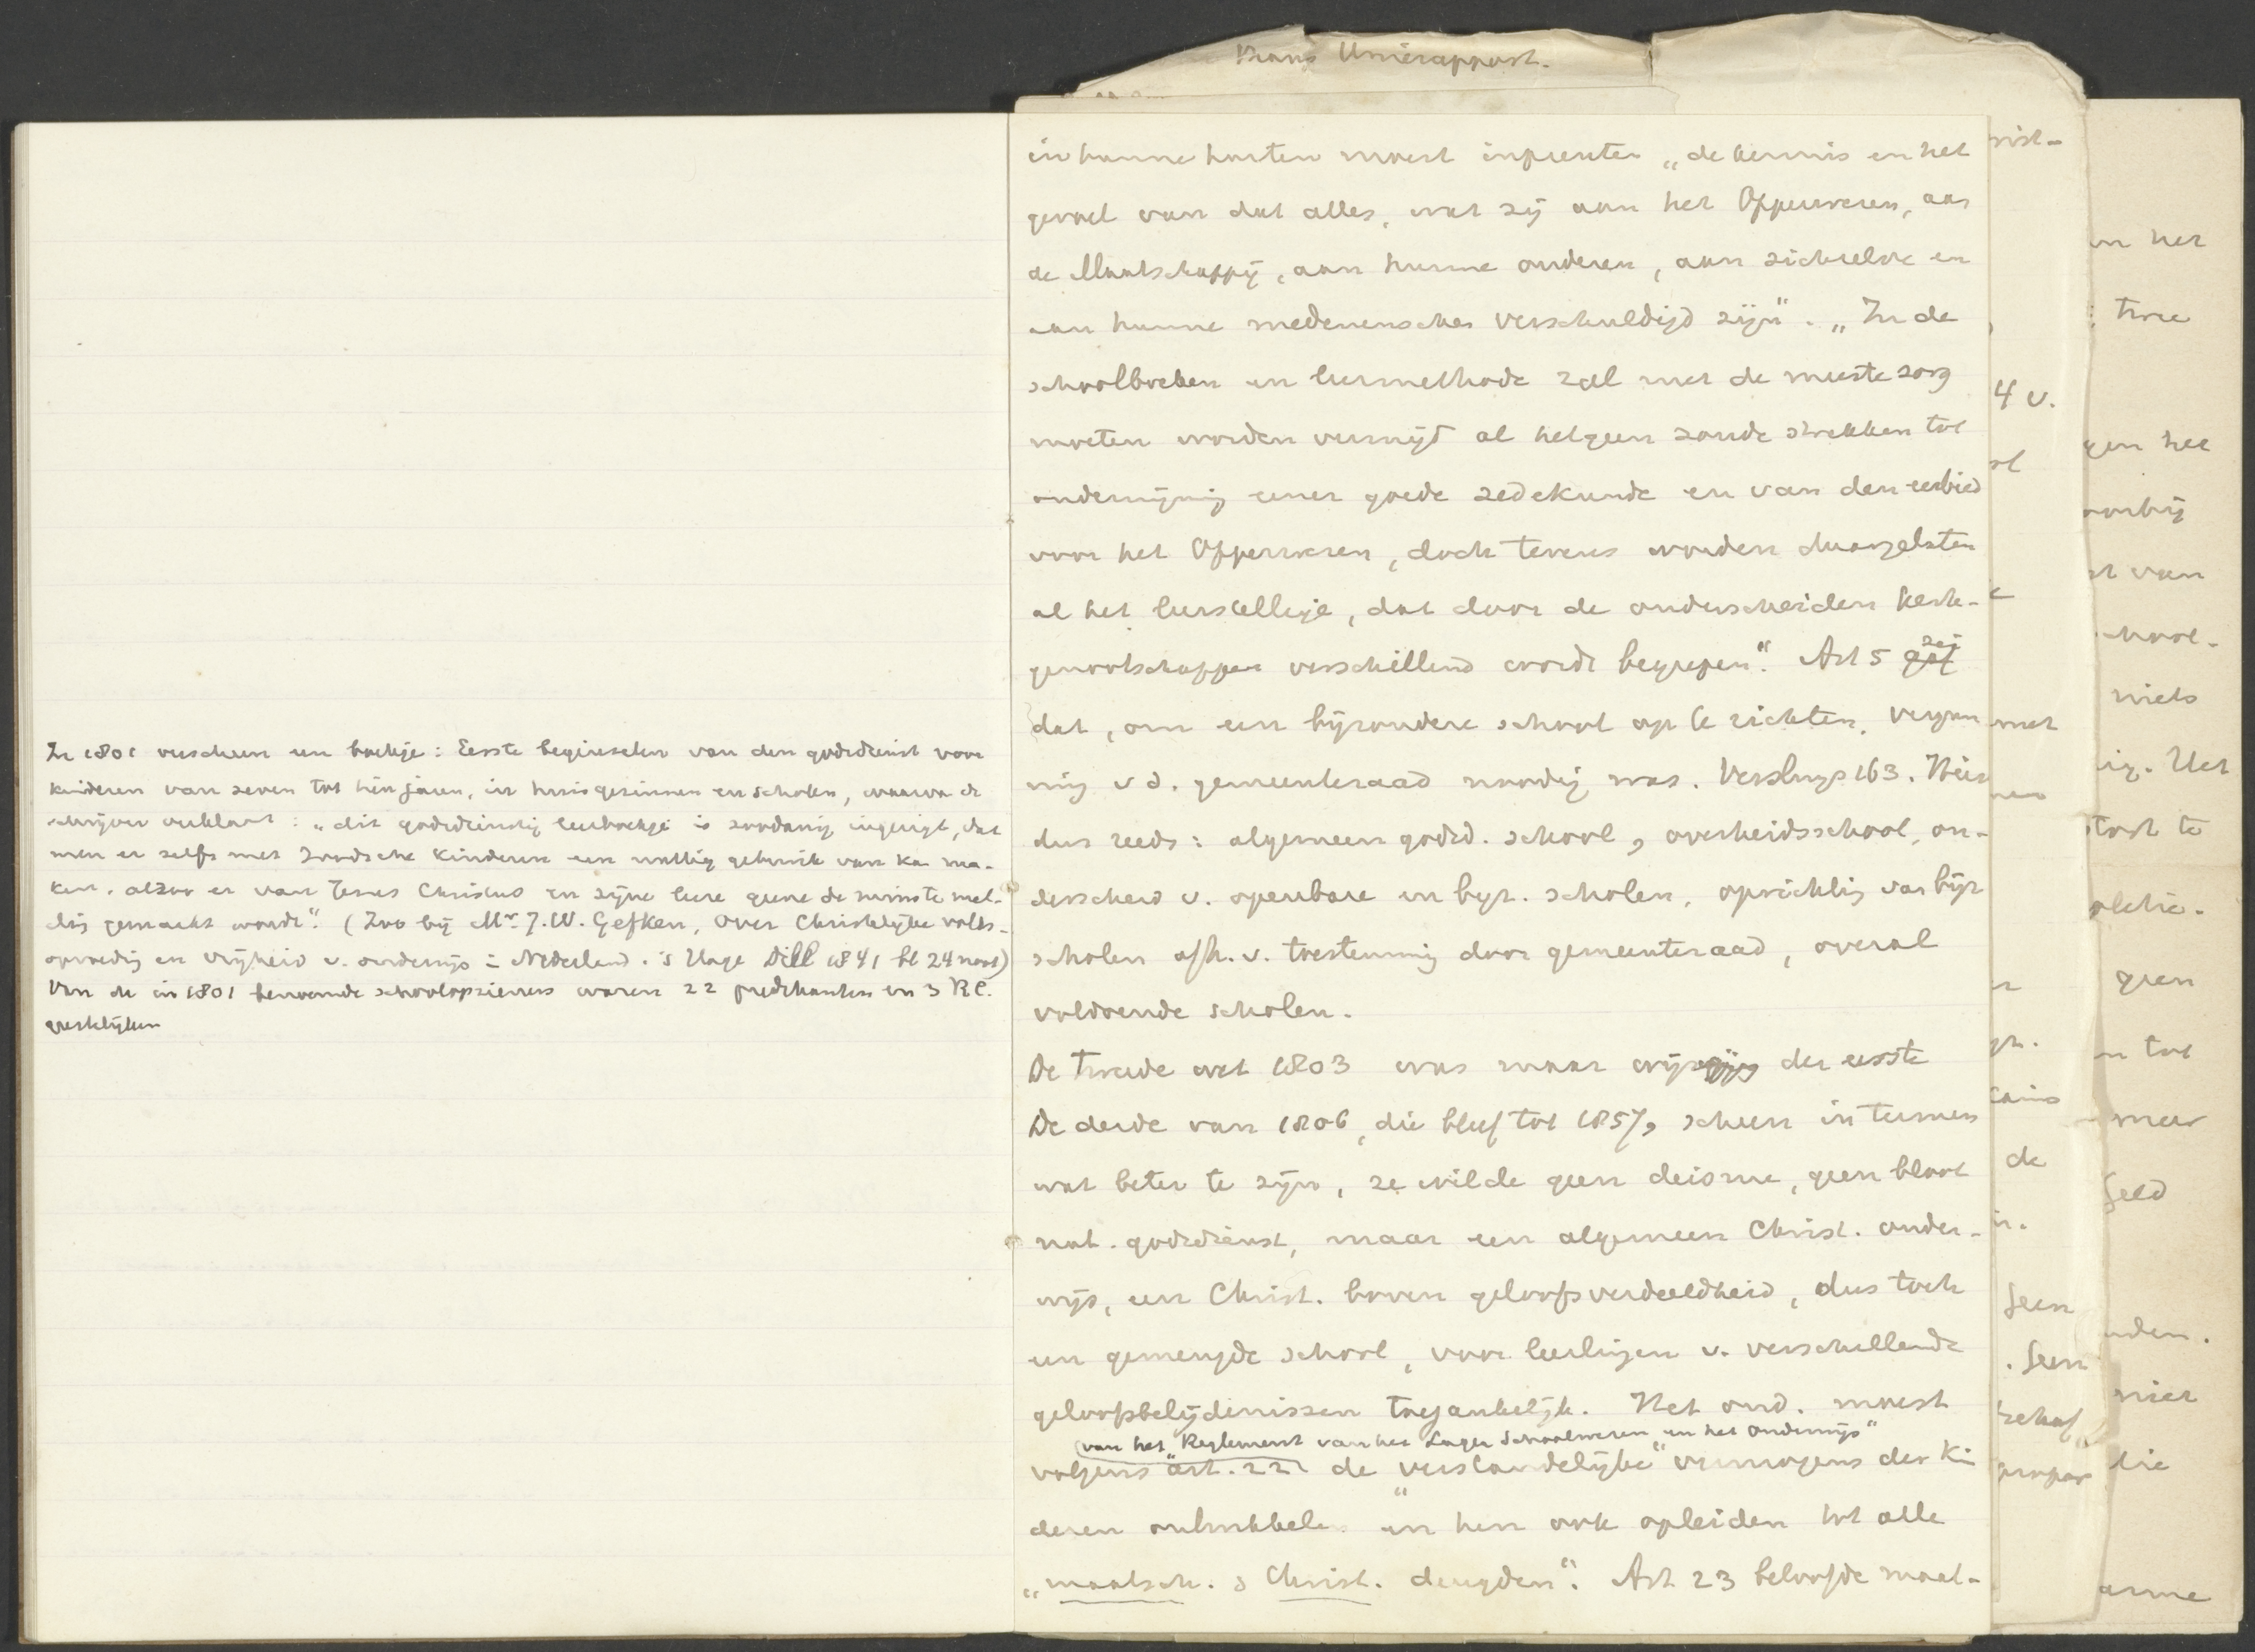 Unierapport.
In 1801 verscheen een boekje: Eerste beginselen van den godsdienst voor
kinderen van zeven tot tien jaren, in huisgezinnen en scholen, waarvan de
schrijver verklaart: „dit godsdienstig leerboekje is zoodanig ingerigt, dat
men er zelfs met Joodsche kinderen een nuttig gebruik van kan ma-
ken, alzoo er van Jezus Christus en zijne leere geene de minste mel-
ding gemaakt wordt". (Zoo bij Mr. J.W. Gefken, Over Christelijke volks-
opvoeding en vrijheid v. onderwijs in Nederland. 's Hage 1841 bl 24 noot)
Van de in 1801 benoemde schoolopzieners waren 22 predikanten en 3 R.C.
geestelijken
in hunne harten moest inprenten „de kennis en het
gevoel van dat alles, wat zij aan het Opperwezen, aan
de Maatschappij, aan hunne ouderen, aan zichzelve en
aan hunne medemenschen verschuldigd zijn". „In de
schoolboeken en leermethode zal met de meeste zorg
moeten worden vermijd al hetgeen zoude strekken tot
ondermijning eener goede zedekunde en van den eerbied
voor het Opperwezen, doch tevens worden daargelaten
al het leerstellige, dat door de onderscheiden kerk-
genootschappen verschillend wordt begrepen". Art 5 gaf zei
dat, om een bijzondere school op te richten, vergun
ning v d. gemeenteraad noodig was. Versluys 163. Hier
dus reeds: algemeen godsd. school, overheidsschool, on-
derscheid v. openbare en byz. scholen, oprichting van bijz
scholen afh. v. toestemming door gemeenteraad, overal
voldoende scholen.
De tweede wet 1803 was maar wijziging der eerste
De derde van 1806, die bleef tot 1857, scheen in termen
wat beter te zijn, ze wilde geen deisme, geen bloot
nat. godsdienst, maar een algemeen Christ. onder-
wijs, een Christ. boven geloofsverdeeldheid, dus toch
een gemengde school, voor leerlingen v. verschillende
geloofsbelijdenissen toegankelijk. Het ond. moest
(van het „Reglement van het Lager Schoolwezen en het onderwijs"
volgens art. 22 de „verstandelijke" vermogens der kin
deren ontwikkelen en hen ook opleiden tot alle
„maatsch. & Christ. deugden". Art 23 beloofde maat-
4 v.
met
de
geen
het
twee
gen het
voorbij
niets
geen
meer
niet
die
arme